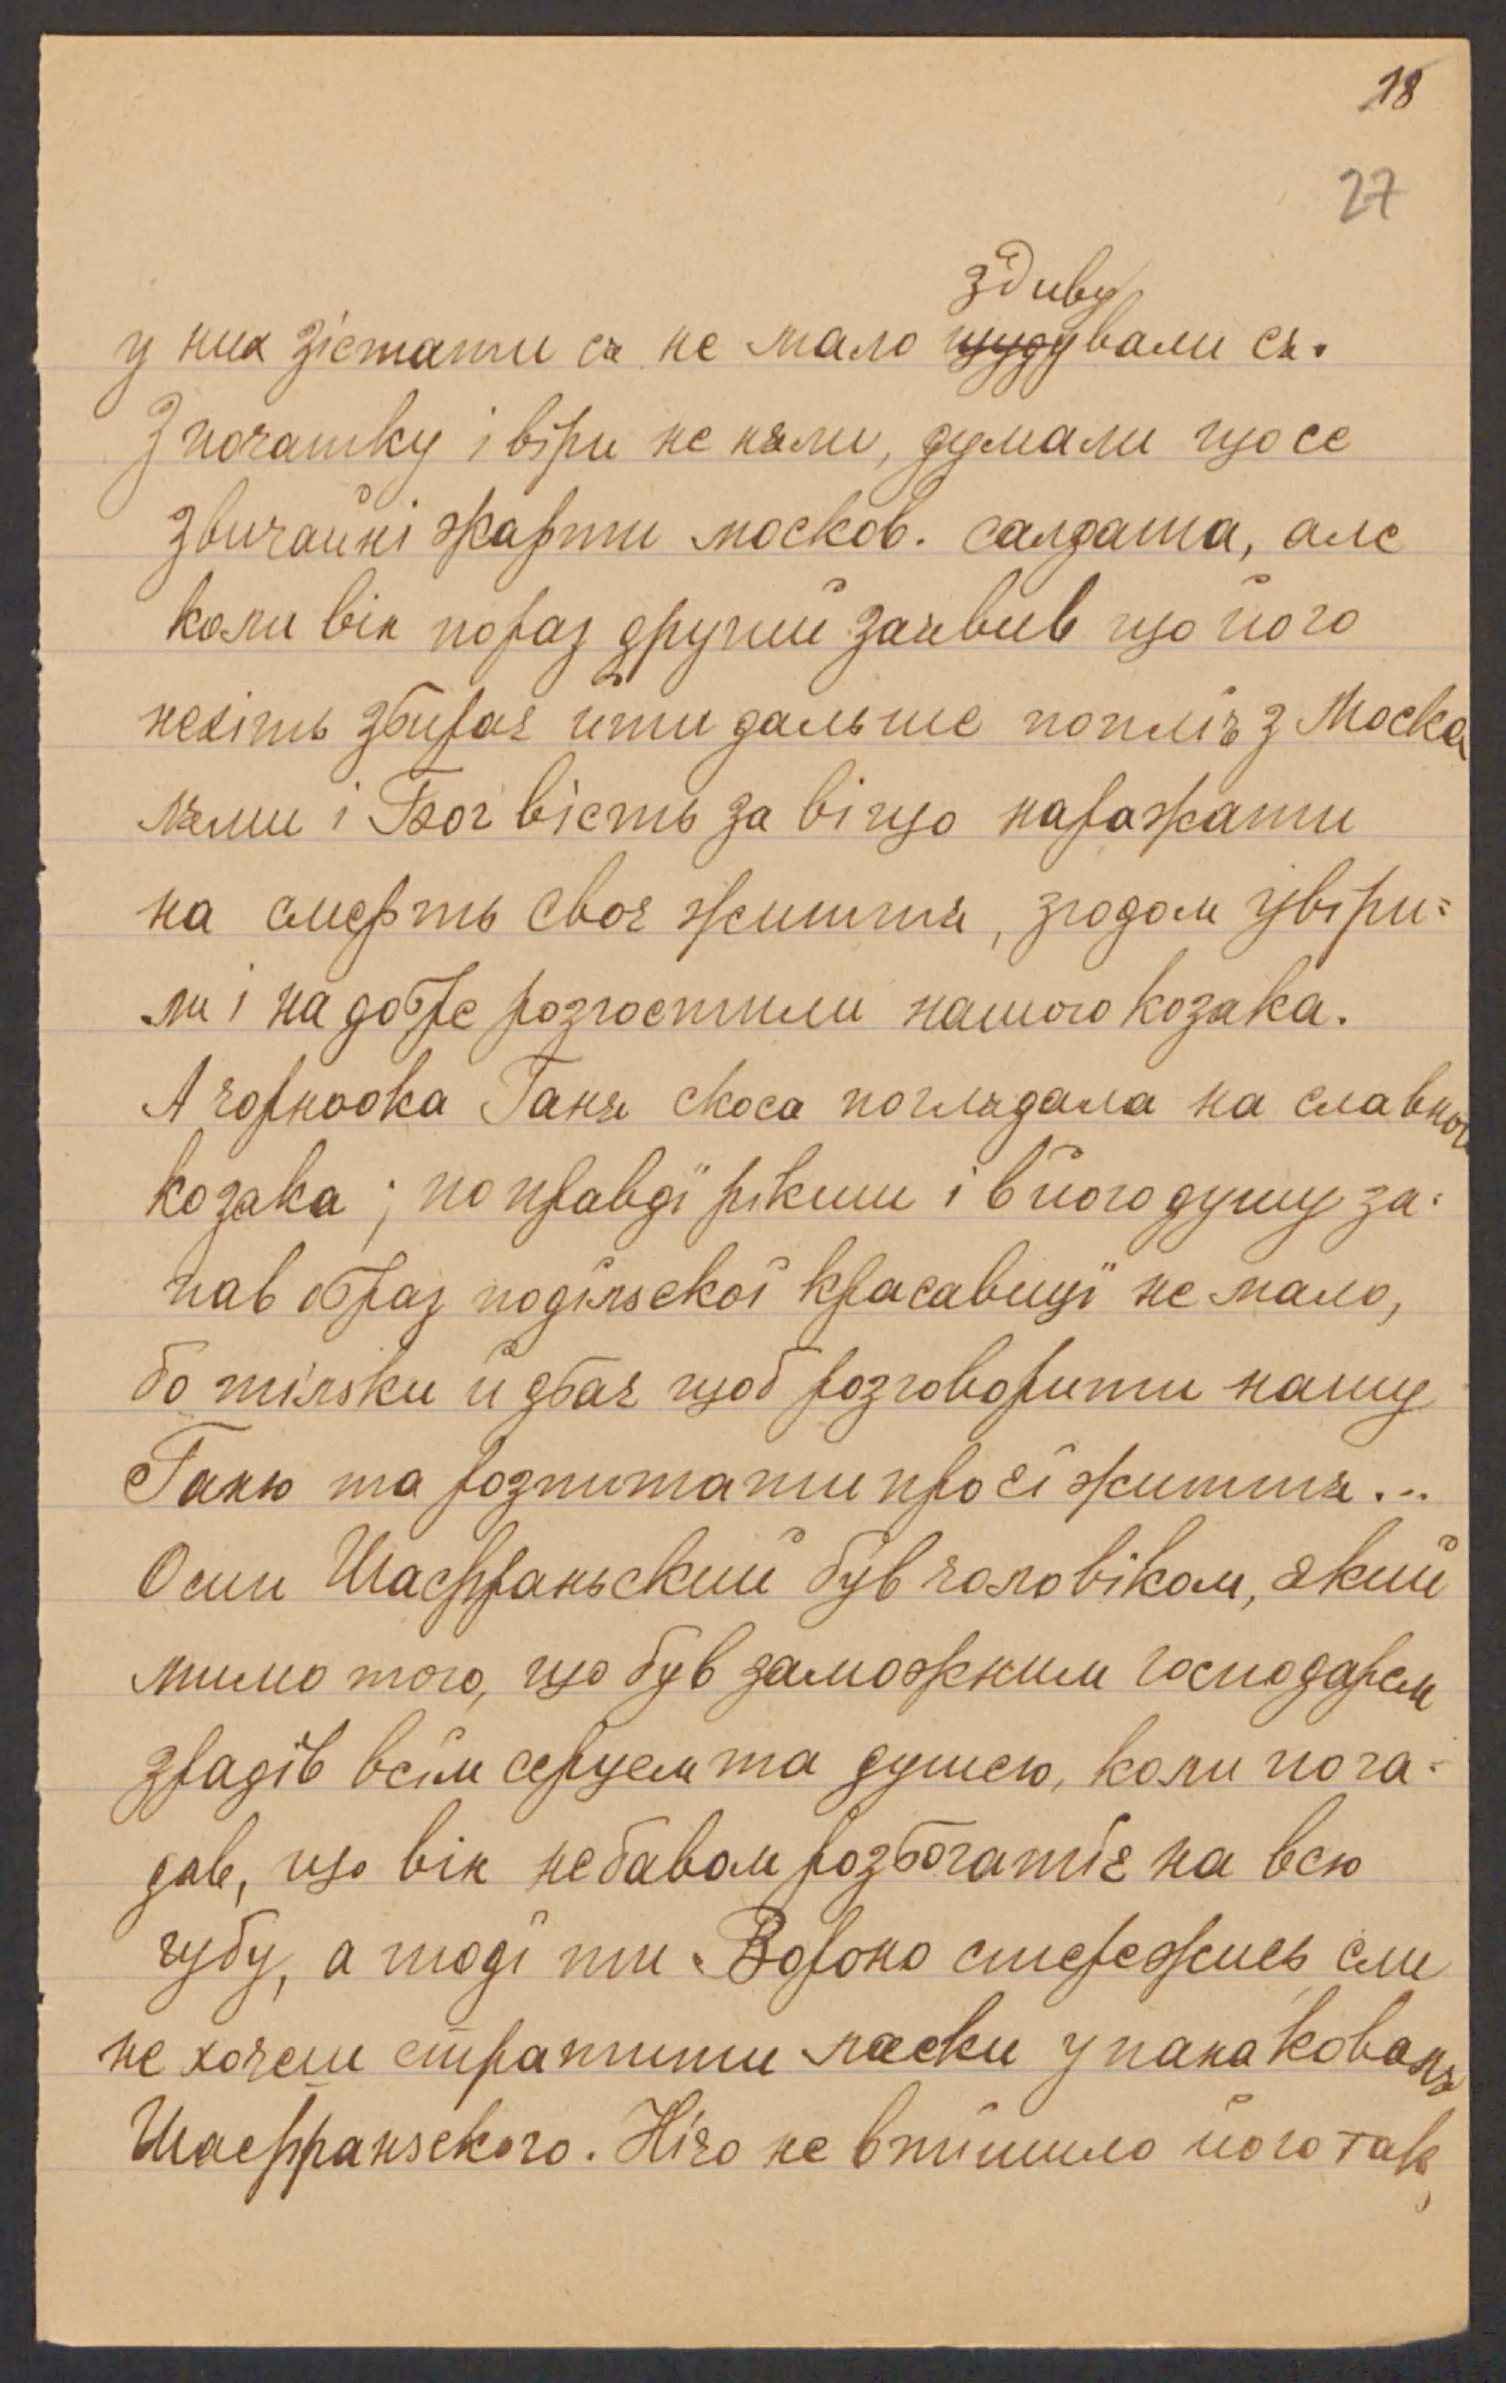 18
27
здиву
у них зістати ся не мало щудували ся.
З початку і віри не няли, думали що се
звичайні жарти москов. салдата, але
коли він пораз другий заявив що його
нехіть збирає йти дальше попліч з Моска
лями і Бог вість за віщо наражати
на смерть своє життя, згодом увіри=
ли і на добре розгостили нашого козака.
А чорноока Ганя скоса поглядала на славного
козака; по правдї рікши і в його душу за-
пав образ подїльскої красавицї не мало,
бо тілько й дбає щоб розговорити нашу
Ганю та розпитати про єї життя...
Осип Шафраньский був чоловіком, який
мимо того, що був заможним господарем
зрадів всїм серцем та душею, коли пога-
дав, що він небавом розбогатіє на всю
губу, а тоді ти Вороно стережись, єли
не хочеш стратити ласки у пана коваля
Шафраньского. Нічо не втішило його так,